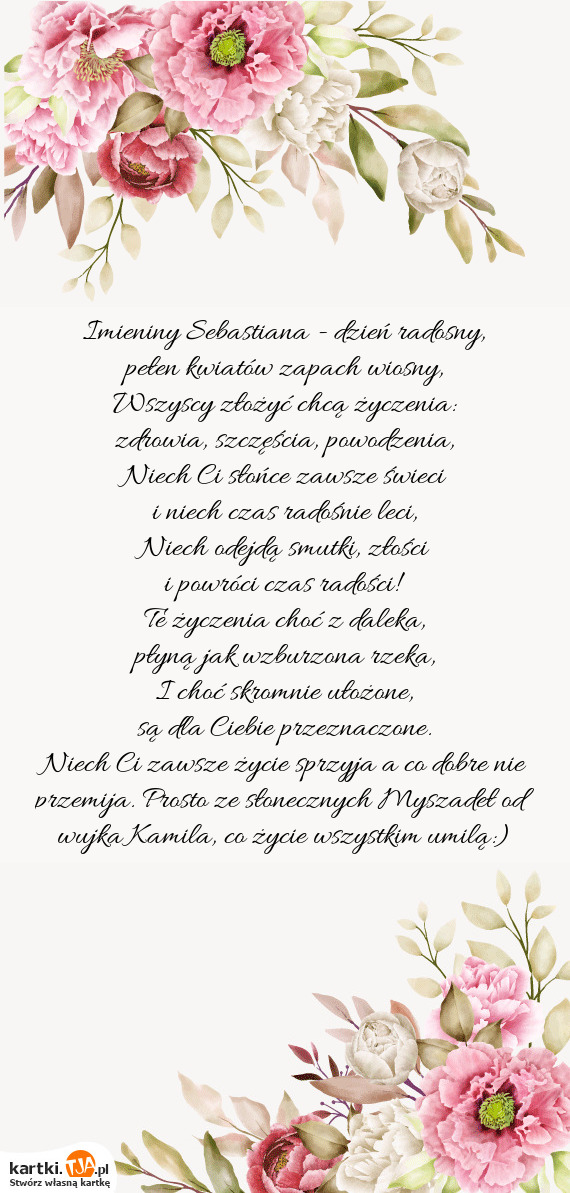 Imieniny Sebastiana - dzień radosny,
pełen kwiatów zapach wiosny,
Wszyscy złożyć chcą życzenia:
zdrowia, szczęścia, powodzenia,
Niech Ci słońce zawsze świeci
i niech czas radośnie leci,
Niech odejdą smutki, złości
i powróci czas radości!
Te życzenia choć z daleka,
płyną jak wzburzona rzeka,
I choć skromnie ułożone,
są dla Ciebie przeznaczone.
Niech Ci zawsze życie sprzyja a co dobre nie
przemija. Prosto ze słonecznych Myszadeł od
wujka Kamila, co życie wszystkim umilą:)
kartki.TJA.pl
Stwórz własną kartkę